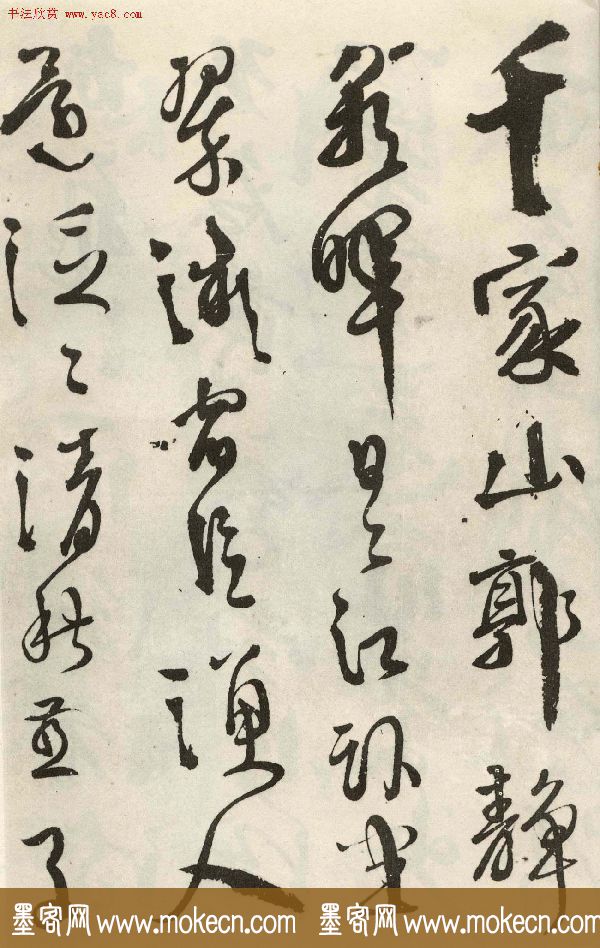 书法欣赏 www.yac8.com
千家山郭靜
朝暉日々江坐
翠微宿信漁人
還泛々清秋燕子
墨客网 www.mokecn.com 墨客网 www.mokecn.com